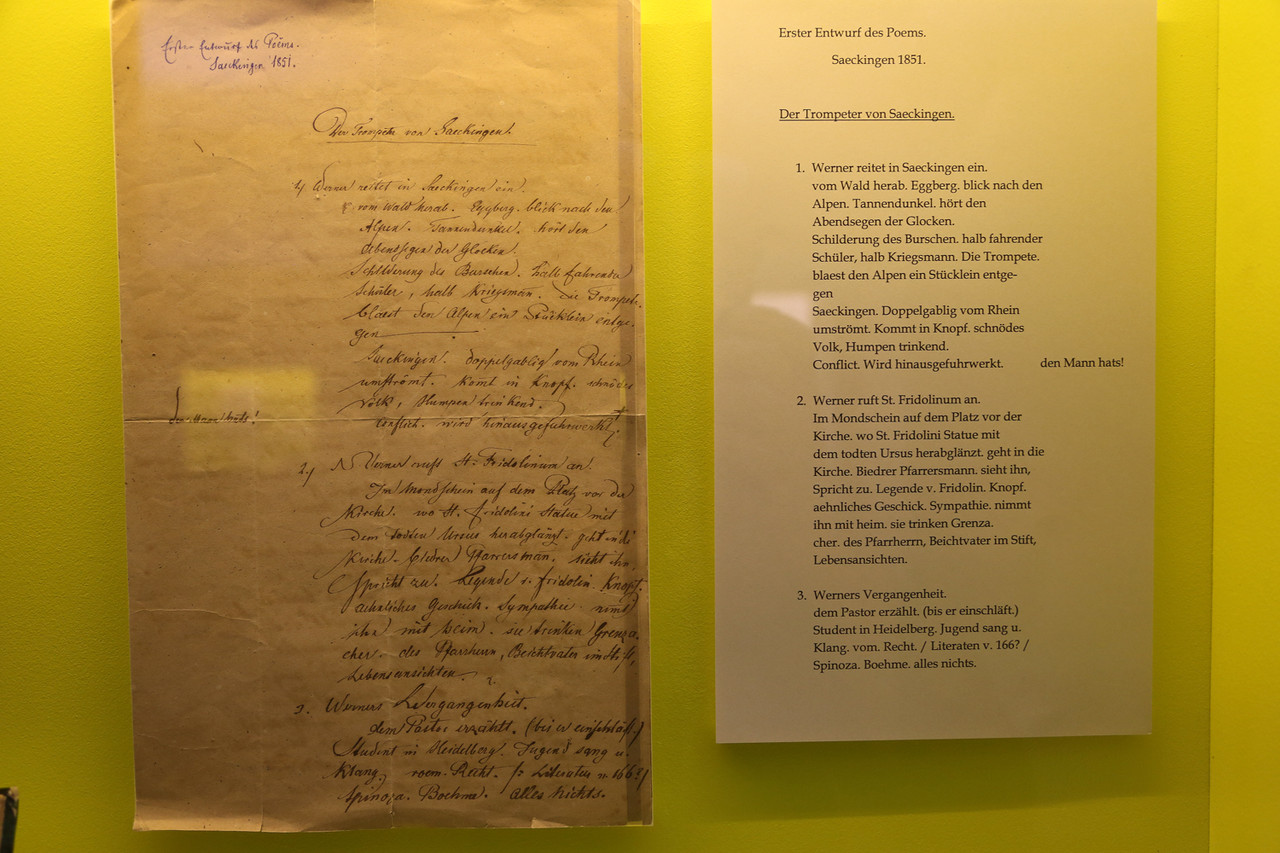 Erster Entwurf des Poems.
Saeckingen 1851.
Der Trompeter von Saeckingen.
1) Werner reitet in Saeckingen ein.
vom Wald herab. Eggberg. blick nach den
Alpen. Tannendunkel. hört den
Abendsegen der Glocken.
Schilderung des Burschen. halb fahrender
Schüler, halb Kriegsmann. die Trompete.
blaest den Alpen ein Stücklein entge-
gen
Saeckingen. doppelgablig vom Rhein
umströmt. komt in Knopf. schnödes
Volk, Humpen trinkend.
den Mann hats!
Conflict. wird hinausgefuhrwerkt.
2.) Werner ruft St. Fridolinum an.
Im Mondschein auf dem Platz vor der
Kirche. wo St. Fridolini Statue mit
dem todten Ursus herabglänzt. geht in die
Kirche. biedrer Pfarrersman. sieht ihn,
Spricht zu. Legende v. Fridolin. Knopf.
aehnliches Geschick. Sympathie. nimt
ihn mit heim. sie trinken Grenza-
cher. des Pfarrherrn, Beichtvater im Stift,
Lebensansichten.
3. Werners Vergangenheit.
dem Pastor erzählt. (bis er einschläft.)
Student in Heidelberg. Jugend sang u.
Klang. roem. Recht.
Spinoza. Boehme. alles nichts.
Erster Entwurf des Poems.
Saeckingen 1851.
Der Trompeter von Saeckingen.
1. Werner reitet in Saeckingen ein.
vom Wald herab. Eggberg. blick nach den
Alpen. Tannendunkel. hört den
Abendsegen der Glocken.
Schilderung des Burschen. halb fahrender
Schüler, halb Kriegsmann. Die Trompete.
blaest den Alpen ein Stücklein entge-
gen
Saeckingen. Doppelgablig vom Rhein
umströmt. Kommt in Knopf. schnödes
Volk, Humpen trinkend.
Conflict. Wird hinausgefuhrwerkt. den Mann hats!
2. Werner ruft St. Fridolinum an.
Im Mondschein auf dem Platz vor der
Kirche. wo St. Fridolini Statue mit
dem todten Ursus herabglänzt. geht in die
Kirche. Biedrer Pfarrersmann. sieht ihn,
Spricht zu. Legende v. Fridolin. Knopf.
aehnliches Geschick. Sympathie. nimmt
ihn mit heim. sie trinken Grenza.
cher. des Pfarrherrn, Beichtvater im Stift,
Lebensansichten.
3. Werners Vergangenheit.
dem Pastor erzählt. (bis er einschläft.)
Student in Heidelberg. Jugend sang u.
Klang. vom. Recht. / Literaten v. 166? /
Spinoza. Boehme. alles nichts.